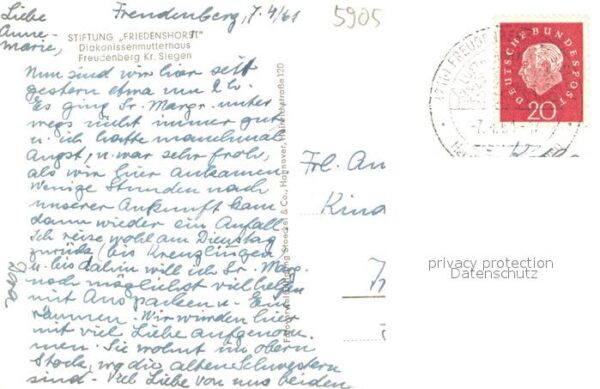 Freudenberg, 7.4/61
5905
Liebe
Anne-
Marie,
STIFTUNG „FRIEDENSHORST"
Diakonissenmutterhaus
Freudenberg Kr. Siegen
Nun sind wir hier seit
gestern etwa um 2 h.
Es ging Sr. Margr. unter
wegs nicht immer gut
u. ich hatte manchmal
Angst, u. war sehr froh,
als wir hier ankamen
Wenige Stunden nach
unserer Ankunft kam
dann wieder ein Anfall.
Ich reise wohl am Dienstag
zurück (bis Kreuzlingen)
u. bis dahin will ich Sr. Marg.
noch möglichst viel helfen
mit Auspacken u. Ein
räumen. Wir wurden hier
mit viel Liebe aufgenom
men. Sie wohnt im obern
Stock, wo die alten Schwestern
sind. Viel Liebe von uns beiden
Dora
Stoeckel & Co., Hannover,
DEUTSCHE BUNDESPOST
20
FREUDENBERG
-7.4.61
Frl. An
Kind
privacy protection
Datenschutz